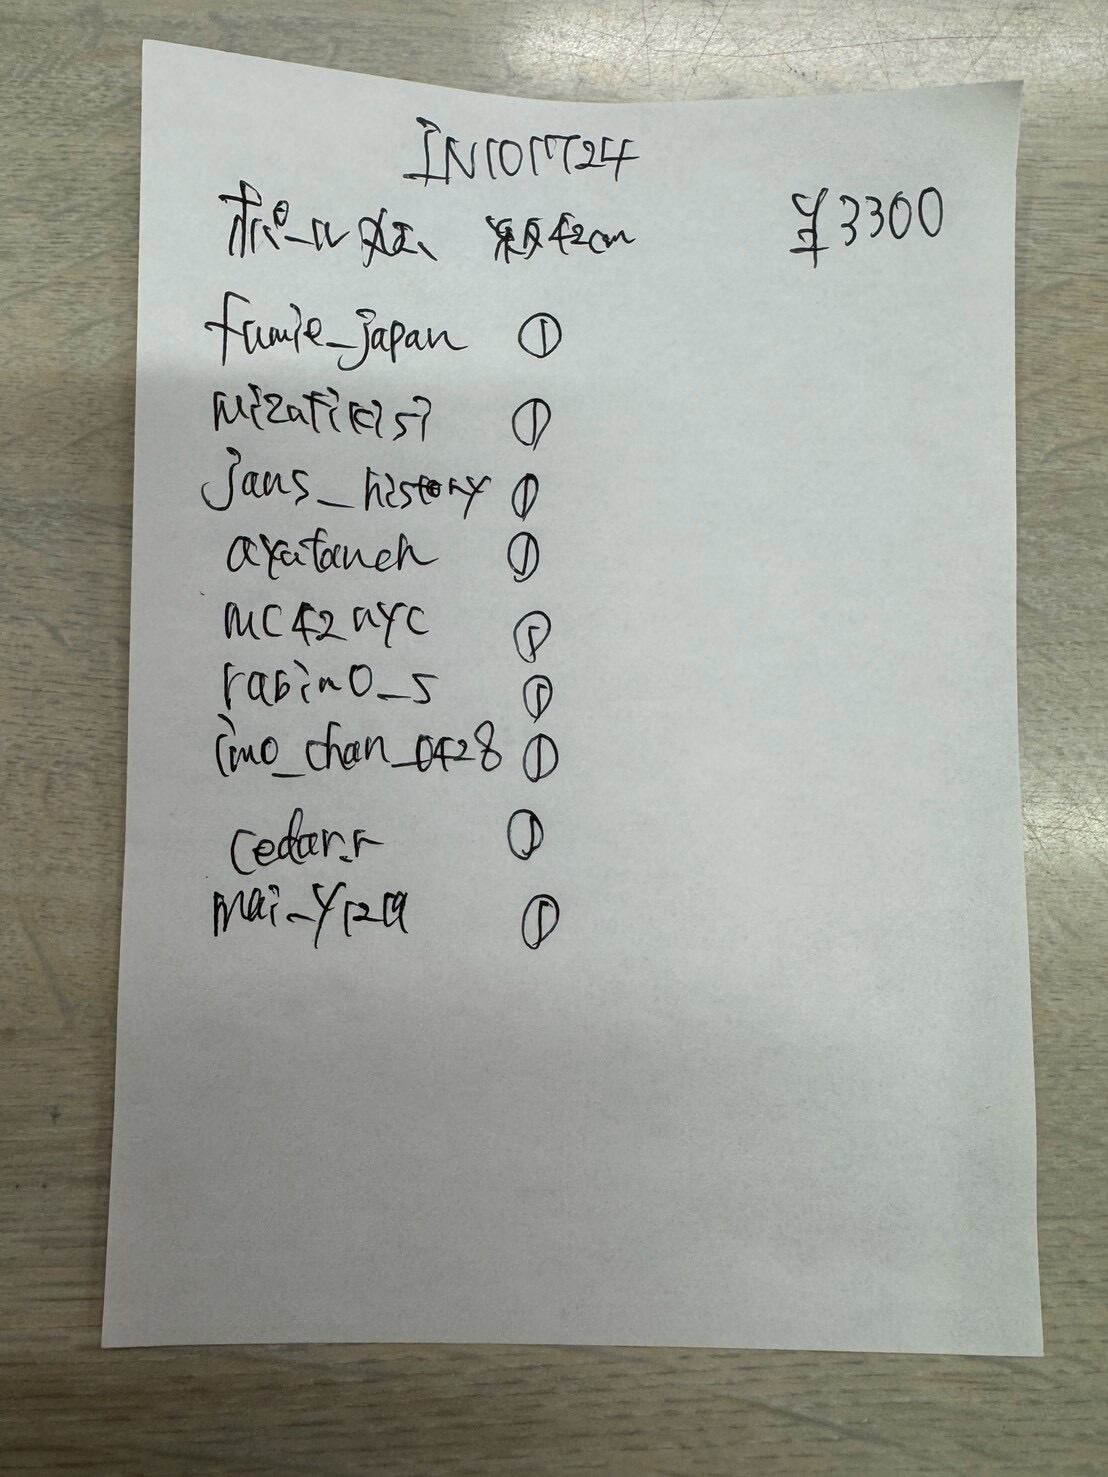 IN101724
ポール 42cm ¥3300
fumie_japan ①
mizatikisi ①
jans_history ①
ayataneh ①
mc42nyc ①
rabim0_s ①
imo_chan_0428 ①
cedar.r ①
mai_y1219 ①